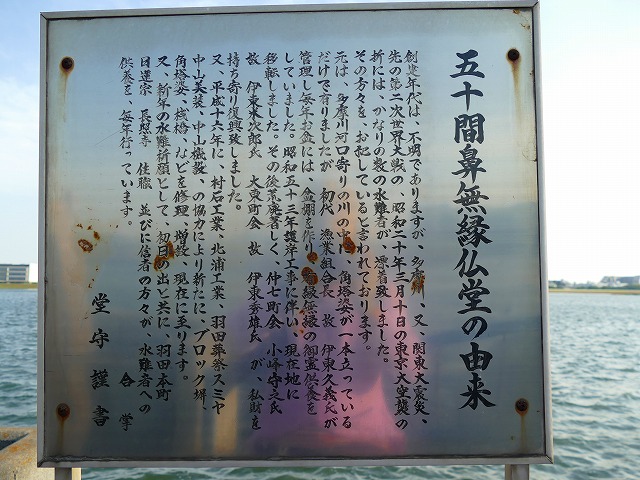 五十間鼻無縁仏堂の由来
創建年代は、不明でありますが、多摩川、又、関東大震災、
先の第二次世界大戦の、昭和二十年三月十日の東京大空襲の
折には、かなりの数の水難者が、漂着致しました。
その方々を、お祀しているると言われております。
元は、多摩川河口寄りの川の中に、角塔婆が一本立っている
だけで有りましたが、初代 漁業組合長 故 伊東久義氏が
管理し毎年お盆には、盆棚を作り、有縁無縁の御霊供養を
していました。昭和五十三年護岸工事に伴い、現在地に
移転しました。その後荒廃著しく、仲七町会 小峰守之氏
故 伊東米次郎氏 大東町会 故 伊東秀雄氏 が、私財を
持ち寄り復興致しました。
又、平成十六年に、村石工業、北浦工業、羽田葬祭スミヤ
中山美装、中山機設、の協力により新たに、ブロック塀、
角塔婆、桟橋、などを修理、増設、現在に至ります。
又、新年の水難祈願として、初日の出と共に、羽田本町
日蓮宗 長照寺 住職 並びに信者の方々が、水難者への
供養を、毎年行っています。
合掌
堂守謹書